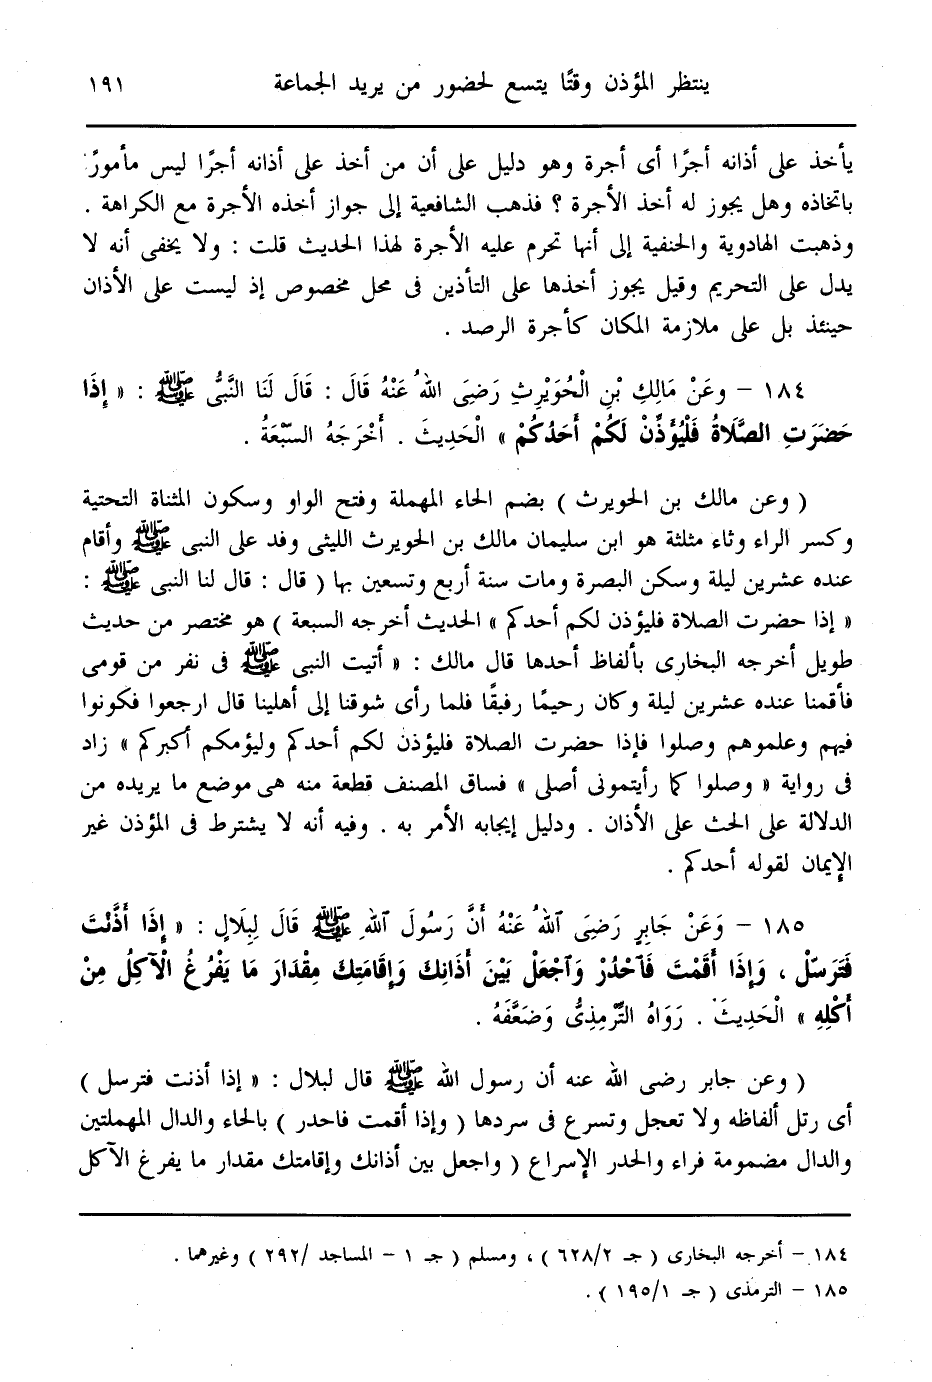 ينتظر المؤذن وقتًا يتسع لحضور من يريد الجماعة ١٩١
يأخذ على أذانه أجرًا أى أجرة وهو دليل على أن من أخذ على أذانه أجرًا ليس مأمورً
باتخاذه وهل يجوز له أخذ الأجرة ؟ فذهب الشافعية إلى جواز أخذه الأجرة مع الكراهة .
وذهبت الهادوية والحنفية إلى أنها تحرم عليه الأجرة لهذا الحديث قلت : ولا يخفى أنه لا
يدل على التحريم وقيل يجوز أخذها على التأذين فى محل مخصوص إذ ليست على الأذان
حينئذ بل على ملازمة المكان كأجرة الرصد .
١٨٤ – وعَنْ مَالِكِ بْنِ الْحُوَيْرِثِ رَضِيَ اللهُ عَنْهُ قَالَ : قَالَ لَنَا النَّبىُّ ﷺ : « إِذَا
حَضَرَتِ الصَّلَاةُ فَلْيُؤَذِّنْ لَكُمْ أَحَدُكُمْ » الْحَدِيثَ . أَخْرَجَهُ السَّبْعَةُ .
( وعن مالك بن الحويرث ) بضم الحاء المهملة وفتح الواو وسكون المثناة التحتية
وكسر الراء وثاء مثلثة هو ابن سليمان مالك بن الحويرث الليثى وفد على النبى ﷺ وأقام
عنده عشرين ليلة وسكن البصرة ومات سنة أربع وتسعين بها ( قال : قال لنا النبى ﷺ :
« إذا حضرت الصلاة فليؤذن لكم أحدكم » الحديث أخرجه السبعة ) هو مختصر من حديث
طويل أخرجه البخارى بألفاظ أحدها قال مالك : « أتيت النبى ﷺ فى نفر من قومى
فأقمنا عنده عشرين ليلة وكان رحيمًا رفيقًا فلما رأى شوقنا إلى أهلينا قال ارجعوا فكونوا
فيهم وعلموهم وصلوا فإذا حضرت الصلاة فليؤذن لكم أحدكم وليؤمكم أكبركم » زاد
فى رواية « وصلوا كما رأيتمونى أصلى » فساق المصنف قطعة منه هى موضع ما يريده من
الدلالة على الحث على الأذان . ودليل إيجابه الأمر به . وفيه أنه لا يشترط فى المؤذن غير
الإيمان لقوله أحدكم .
١٨٥ – وَعَنْ جَابِرٍ رَضِىَ ٱللهُ عَنْهُ أَنَّ رَسُولَ ٱللهِ ﷺ قَالَ لِبِلَالٍ : « إِذَا أَذَّنْتَ
فَتَرَسَّلْ ، وَإِذَا أَقَمْتَ فَٱحْدُرْ وَٱجْعَلْ بَيْنَ أَذَانِكَ وَإِقَامَتِكَ مِقْدَارَ مَا يَفْرُغُ الْآكِلُ مِنْ
أَكْلِهِ » الْحَدِيثَ . رَوَاهُ التِّرْمِذِىُّ وَضَعَّفَهُ .
( وعن جابر رضى الله عنه أن رسول الله ﷺ قال لبلال : « إذا أذنت فترسل )
أى رتل ألفاظه ولا تعجل وتسرع فى سردها ( وإذا أقمت فاحدر ) بالحاء والدال المهملتين
والدال مضمومة فراء والحدر الإسراع ( واجعل بين أذانك وإقامتك مقدار ما يفرغ الآكل
١٨٤ – أخرجه البخارى ( جـ ٦٢٨/٢ ) ، ومسلم ( جـ ١ – المساجد /٢٩٢ ) وغيرهما .
١٨٥ – الترمذى ( جـ ١٩٥/١ ) .